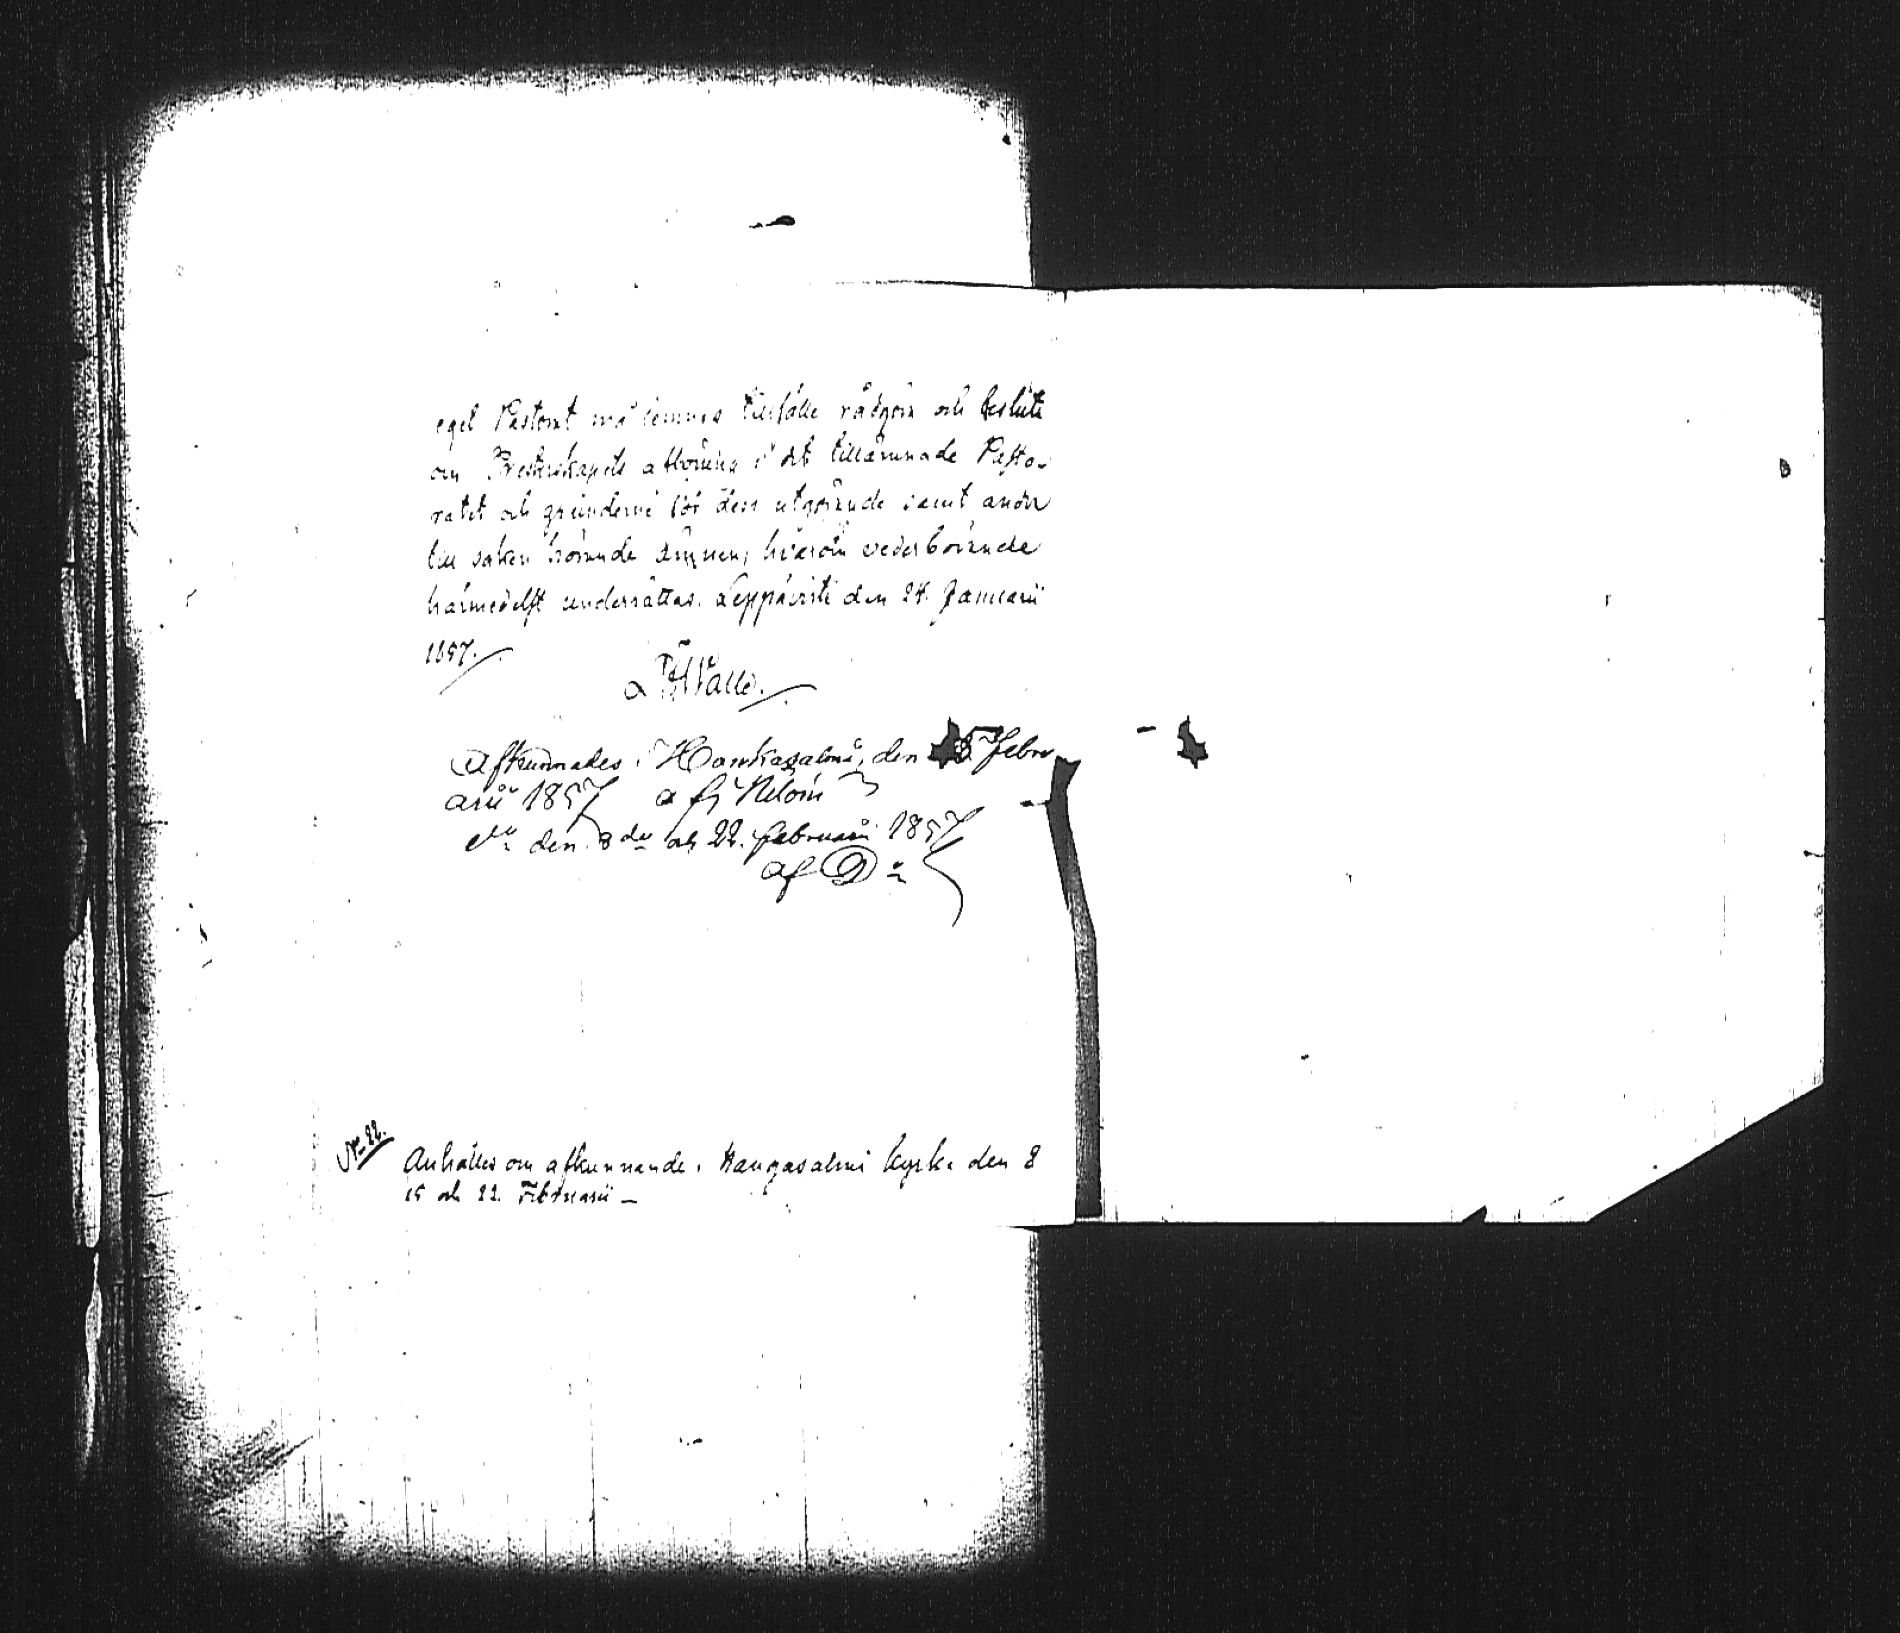 eget Pastorat må lemnas tillfälle rådgöra och besluta
om Presterskapets aflöning i det tillämnade Pasto-
ratet och grunderne för dess utgörande samt andra
till saken hörande ämnen, hvarom vederbörande
härmedelst underrättas. Leppävirta den 24. Januarii
1857.
Afkunnades i Hankasalmi, den Febru
arii 1857 af
den 8de och 22. Februarii 1857
af
No 22.
Anhålles om afkunnande i Hangasalmi kyrka den 8
15 och 22. Februarii –